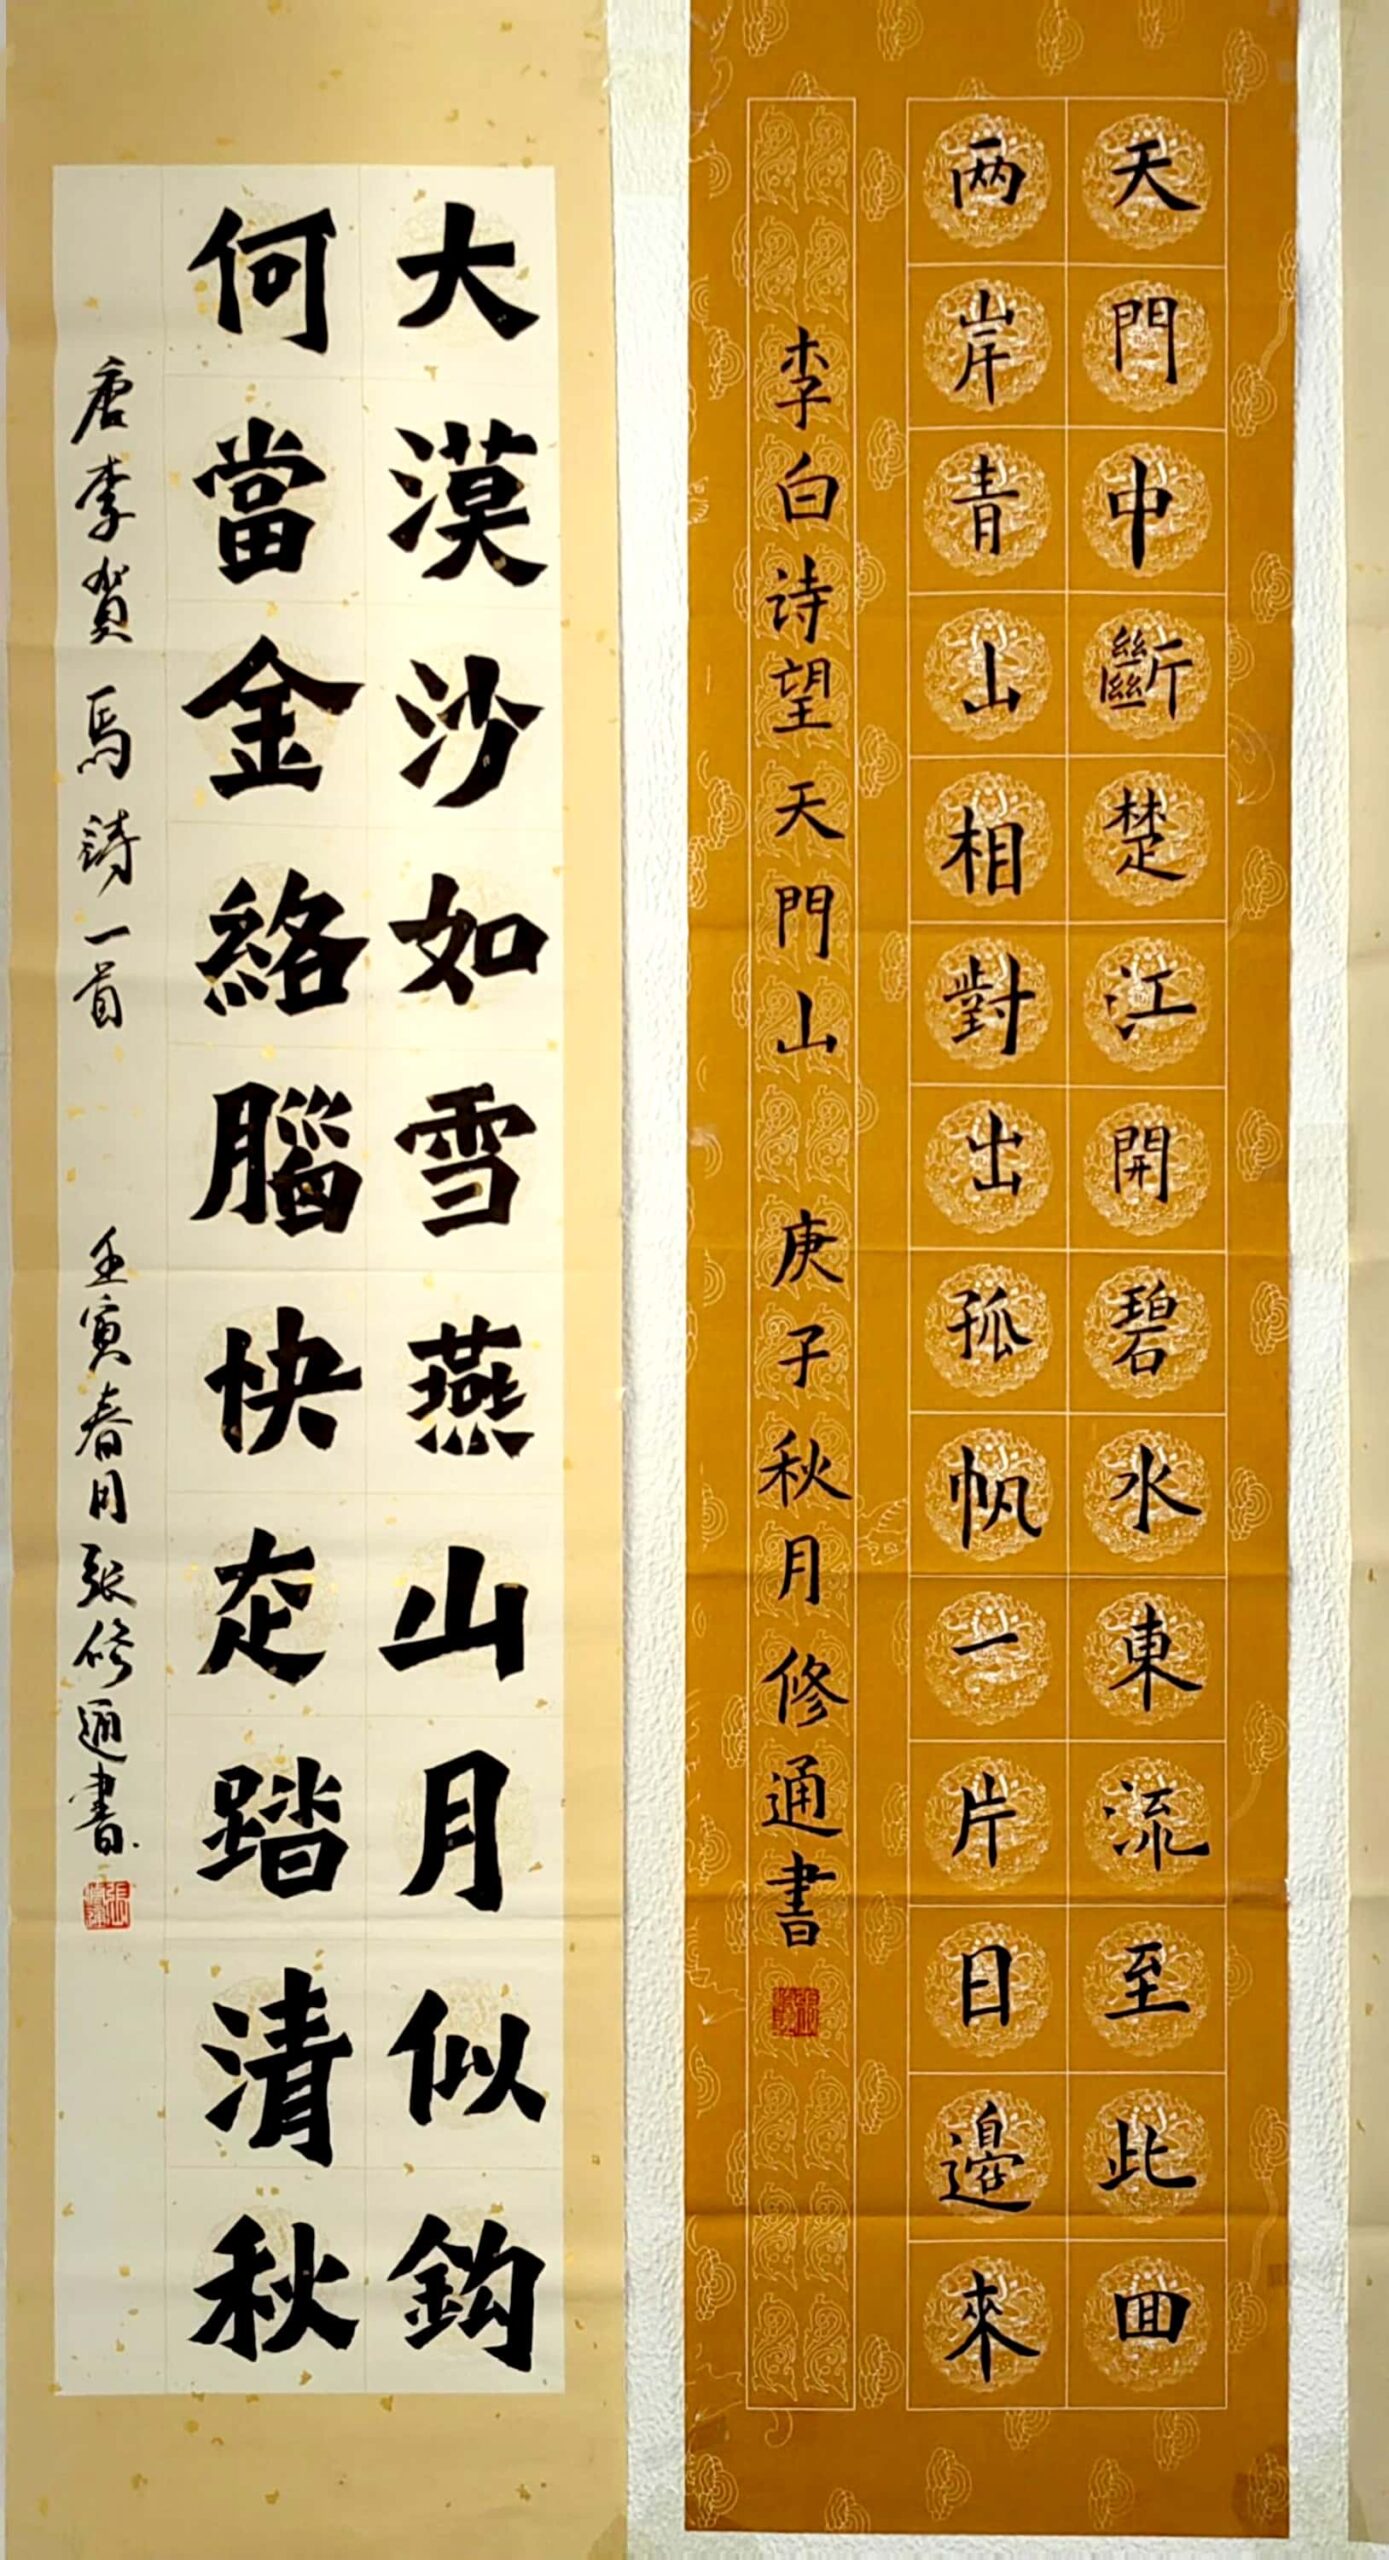 天門中斷楚江開碧水東流至此囬
两岸青山相對出孤帆一片日邊來
李白诗望天門山 庚子秋月修通書
大漠沙如雪燕山月似鈎
何當金絡腦快走踏清秋
唐李賀馬詩一首 壬寅春月張修通書